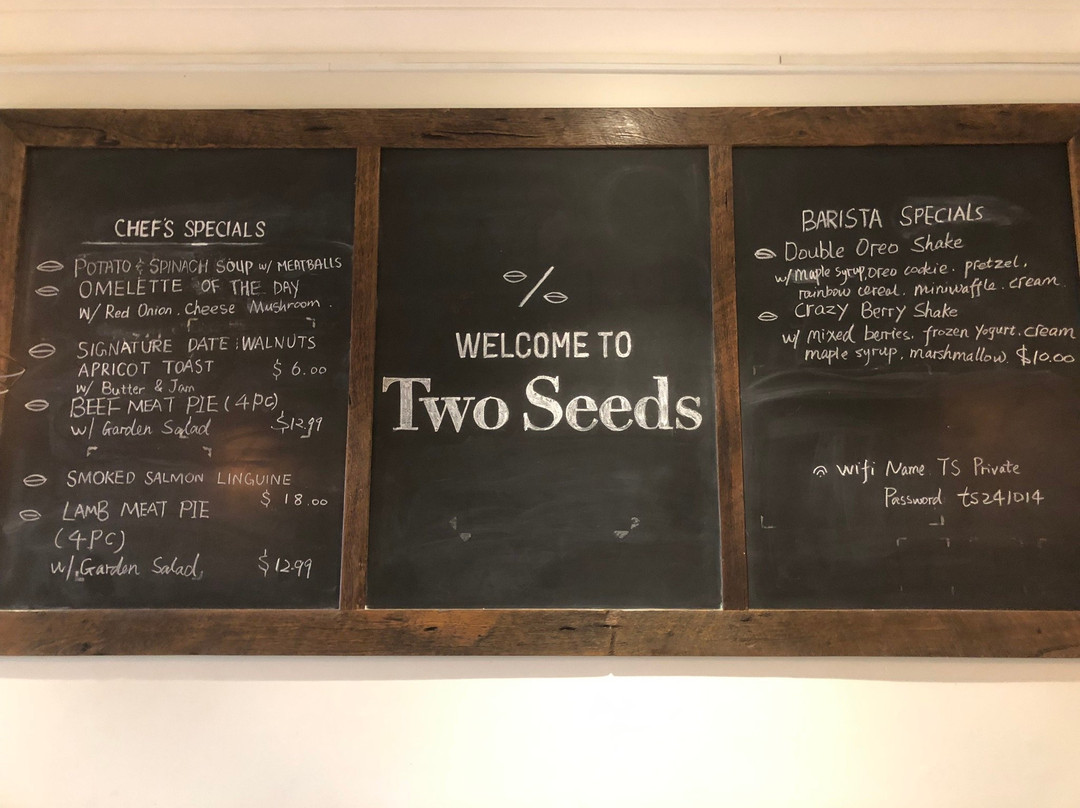 CHEF'S SPECIALS
POTATO & SPINACH SOUP w/ MEATBALLS
OMELETTE OF THE DAY
W/ Red Onion. Cheese Mushroom.
SIGNATURE DATE & WALNUTS
APRICOT TOAST $ 6.00
w/ Butter & Jam
BEEF MEAT PIE (4PC)
w/ Garden Salad $12.99
SMOKED SALMON LINGUINE
$ 18.00
LAMB MEAT PIE
(4PC)
w/ Garden Salad $12.99
WELCOME TO
Two Seeds
BARISTA SPECIALS
Double Oreo Shake
w/ maple syrup, oreo cookie. pretzel,
rainbow cereal. miniwaffle. cream
Crazy Berry Shake
w/ mixed berries, frozen Yogurt. cream
maple syrup, marshmallow $10.00
wifi Name TS Private
Password ts241014